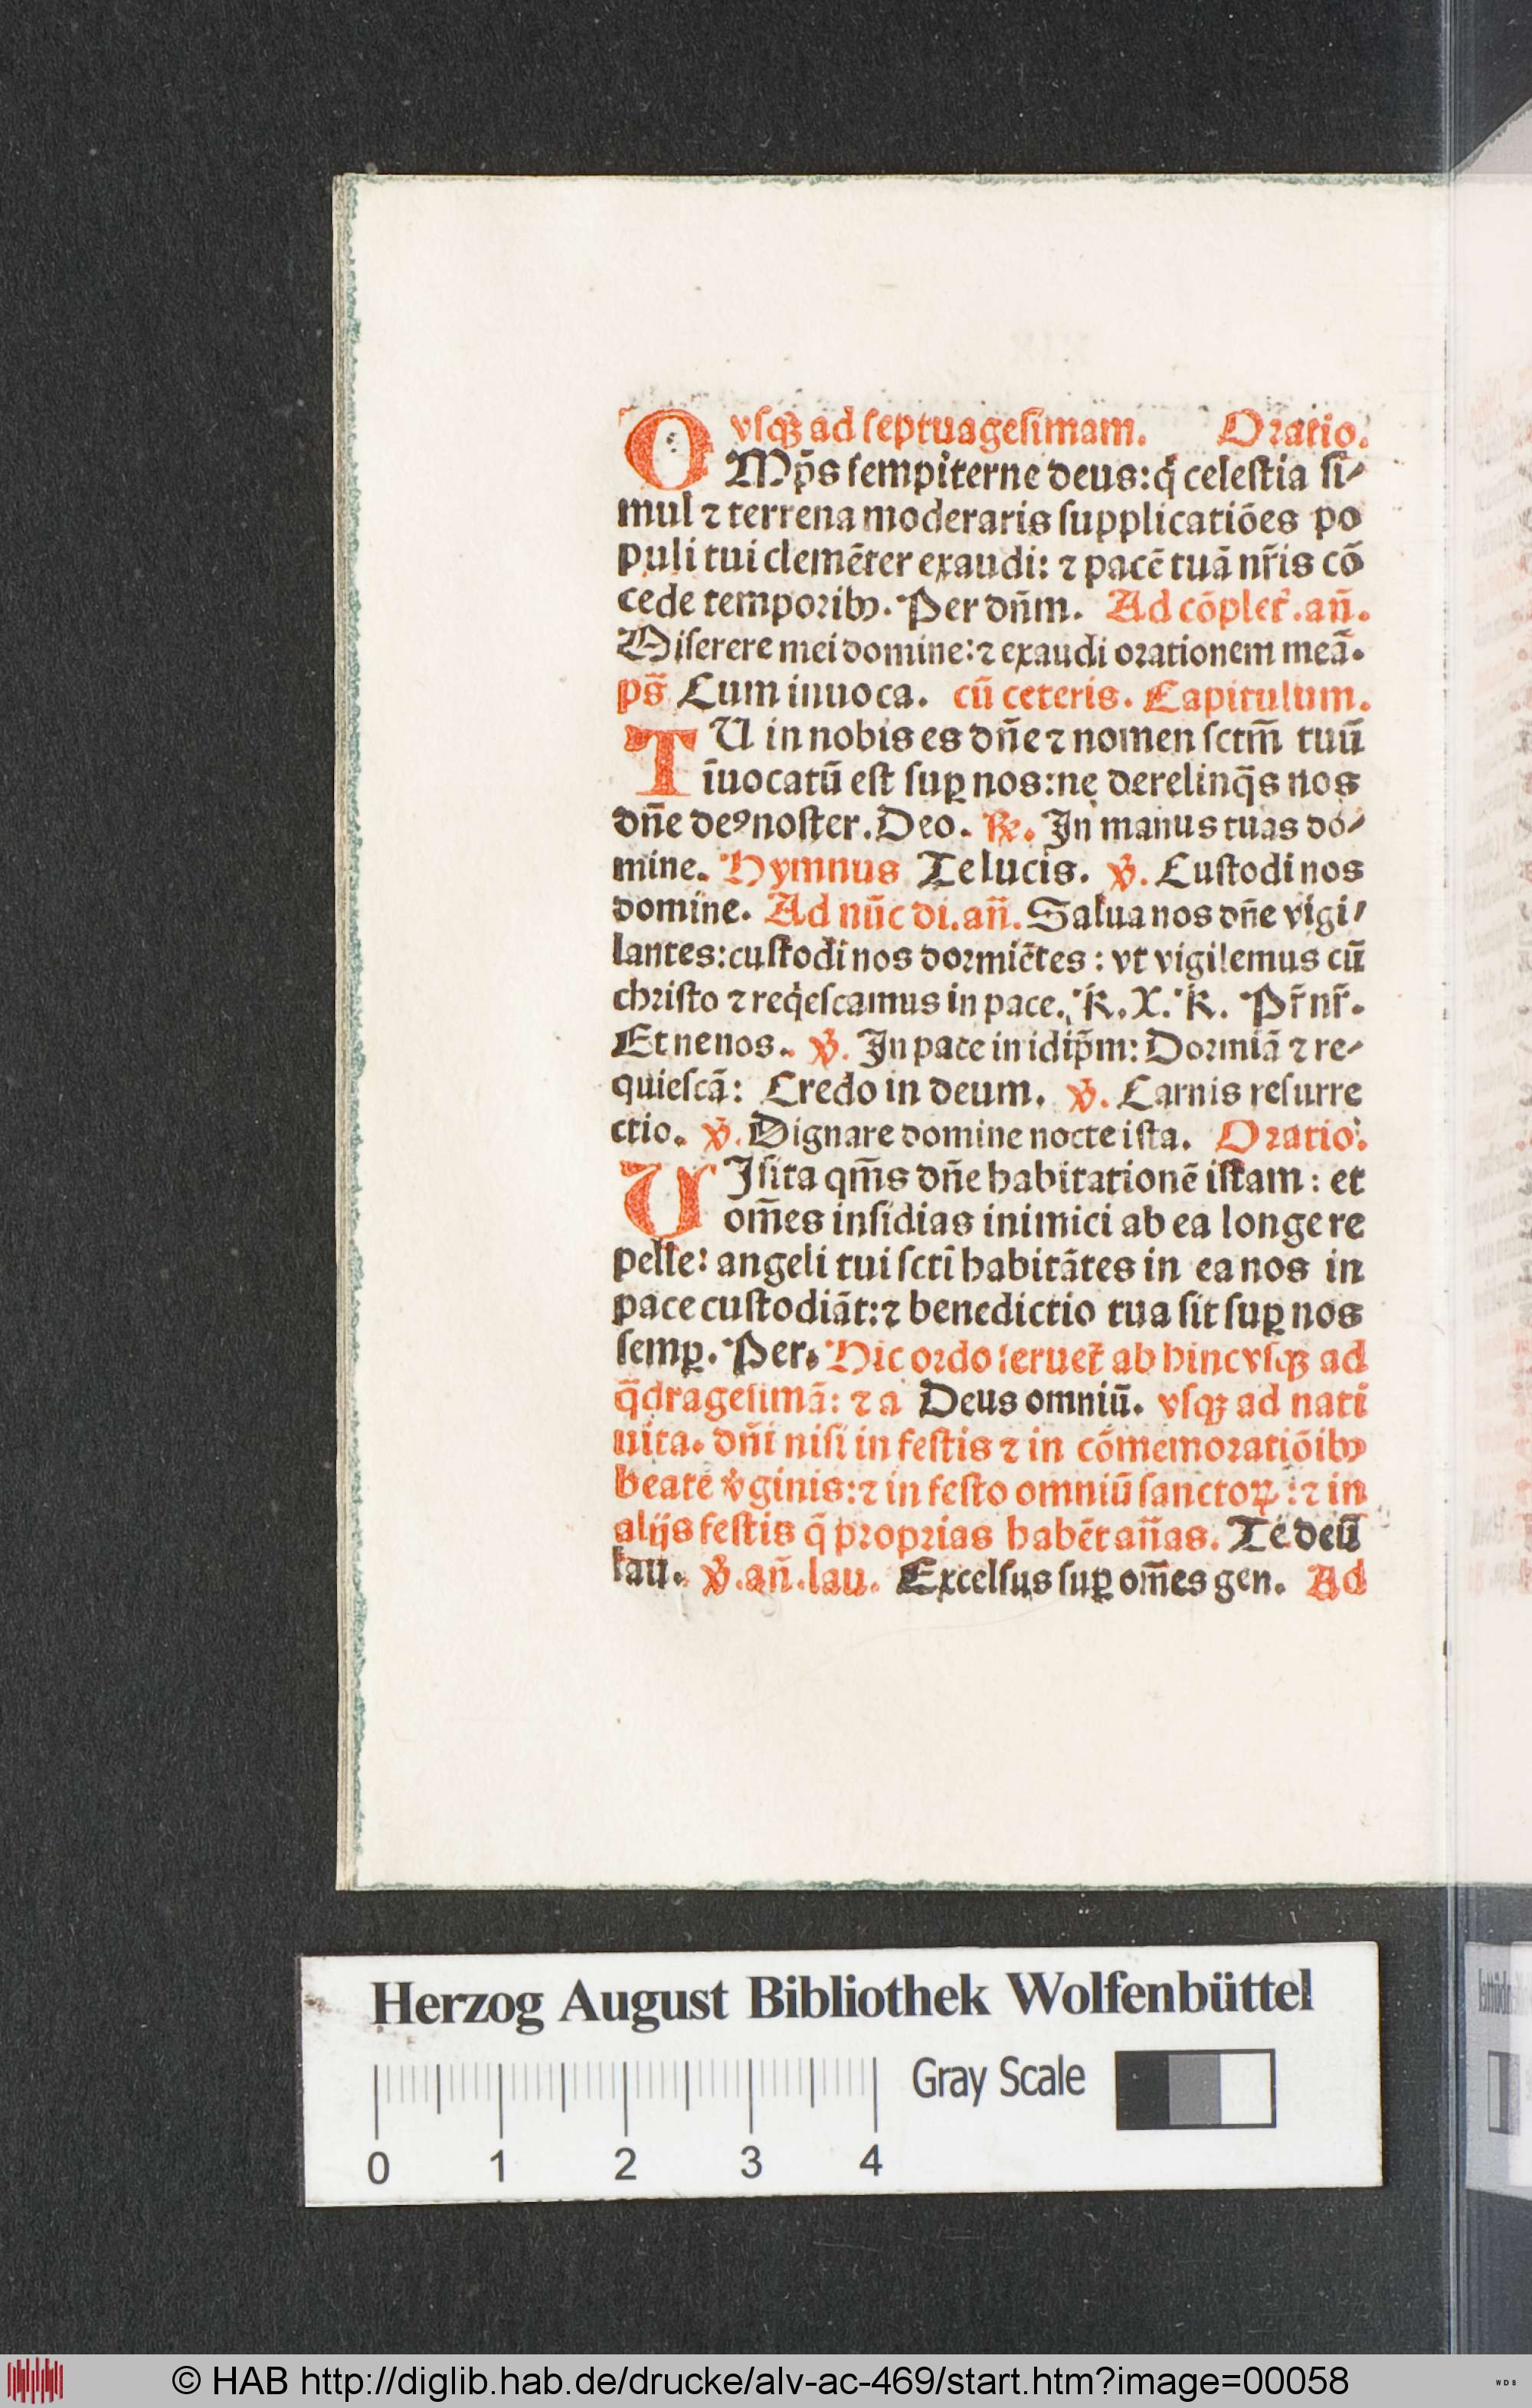 vſqꝫ ad ſeptuageſimam. Oratio.
OMp̄s ſempiterne deus: q̇ celeſtia ſi⸗
mul ⁊ terrena moderaris ſupplicatiōes po
puli tui clemēter exaudi: ⁊ pacē tuā nr̄is cō
cede temporibꝰ. Per dn̄m. Ad cōplet̄. an̄.
Miſerere mei domine: ⁊ exaudi orationem meā.
ps̄ Cum inuoca. cū ceteris. Capitulum.
TU in nobis es dn̄e ⁊ nomen ſctm̄ tuū
īuocatū eſt ſuꝑ nos: ne derelinq̄s nos
dn̄e deꝰ noſter. Deo. ℟. In manus tuas do⸗
mine. Hymnus Te lucis. ℣. Cuſtodi nos
domine. Ad nūc di. an̄. Salua nos dn̄e vigi⸗
lantes: cuſtodi nos dormiētes: vt vigilemus cū
chriſto ⁊ reqͥeſcamus in pace. K. X. K. Pr̄ nr̄.
Et ne nos. ℣. In pace in idip̄m: Dormiā ⁊ re⸗
quieſcā: Credo in deum. ℣. Carnis reſurre
ctio. ℣. Dignare domine nocte iſta. Oratio.
VIſita qm̄s dn̄e habitationē iſtam: et
om̄es inſidias inimici ab ea longe re
pelle: angeli tui ſcti̅ habitātes in ea nos in
pace cuſtodiāt: ⁊ benedictio tua ſit ſuꝑ nos
ſemꝑ. Per. Hic ordo ſeruet̄ ab hinc vſqꝫ ad
q̄drageſimā: ⁊ a Deus omniū. vſqꝫ ad nati
uita. dn̄i niſi in feſtis ⁊ in cōmemoratiōibꝰ
beate v̇ginis: ⁊ in feſto omniū ſanctoꝝ: ⁊ in
alijs feſtis q̄ proprias habēt an̄as. Te deū
lau. ℣. an̄. lau. Excelſus ſuꝑ om̄es gen. Ad
Herzog August Bibliothek Wolfenbüttel
Gray Scale
0 1 2 3 4
© HAB http://diglib.hab.de/drucke/alv-ac-469/start.htm?image=00058
WDB